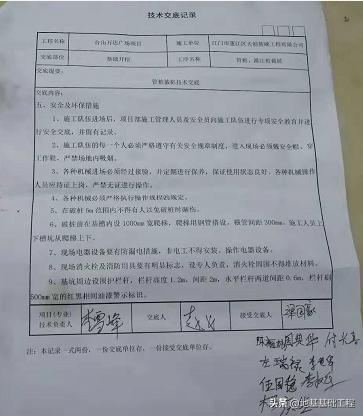 技术交底记录
工程名称 台山万达广场项目 施工单位 江门市蓬江区天朗基础工程有限公司
交底部位 基础开挖 工序名称 管桩、灌注桩截桩
交底提要: 管桩截桩技术交底
交底内容:
五、安全及环保措施
1、施工队伍进场后,项目部施工管理人员及安全员向施工队伍进行专项安全教育并进
行安全交底,并留有记录。
2、施工队伍的每一个人必须严格遵守有关安全规章制度,进入现场必须戴安全帽,穿
工作鞋,严禁场地内吸烟。
3、各种机械进场必须经过检验,并定期进行保养,保证使用状态良好,各种机械操作
人员应持证上岗,严禁无证进行操作。
4、各种机械必须严格执行操作规程的规定。
5、在破桩 6m 范围内不得有人以免破桩时砸伤。
6、破桩前在基槽内设 1000mm 宽爬梯,爬梯用钢管搭设,横管间距 200mm,施工人员上
下槽坑从爬梯上下。
7、现场电器设备要有防漏电措施,非电工不得安装、操作电器设备。
8、现场消火栓及消防用具要有明显标志,设专人负责,消火栓周围不得堆放材料。
9、基坑周边设围护栏杆,栏杆高度 1.2m,间距 2m,水平栏杆两道间距 0.6m,栏杆刷
500mm 宽的红黑相间油漆警示标识。
项目(专业)
技术负责人 交底人 接受交底人
注:本记录一式两份,一份交底单位存,一份接受交底单位存。
头条 @地基基础工程